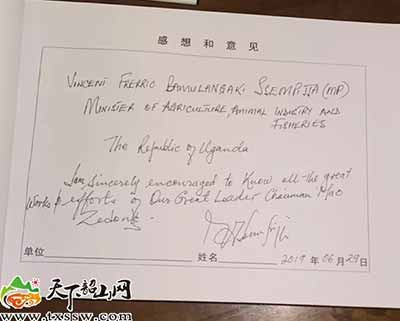 感想和意见
VINCENT FERRIO BAMULANGAKI SSEMPIJJA (MP)
MINISTER OF AGRICULTURE, ANIMAL INDUSTRY AND
FISHERIES
The Republic of Uganda
I am Sincerely encouraged to Know all the great
Works & efforts of Our Great Leader Chairman Mao
Zedong.
单位
姓名
2019年06月29日
天下韶山网
www.txssw.com